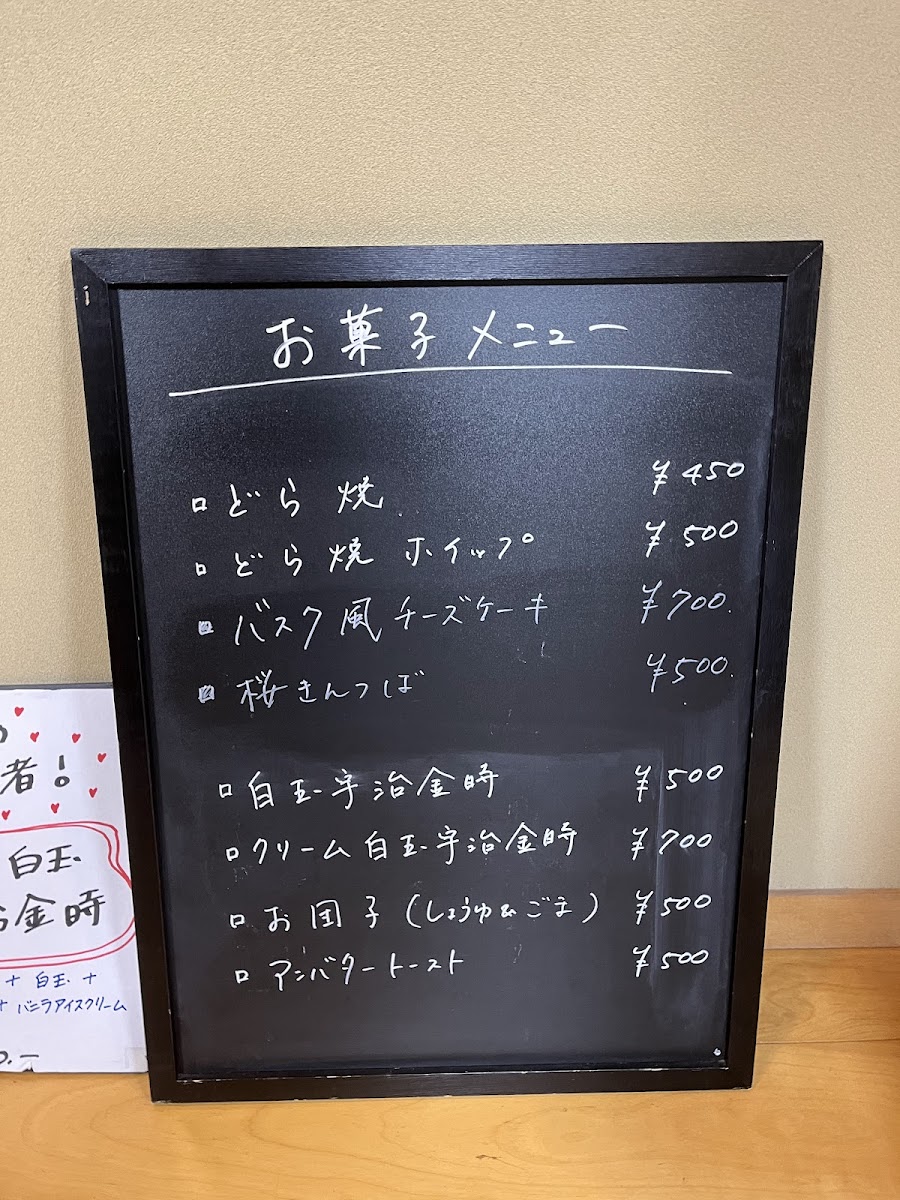 お菓子メニュー
どら焼 ¥450
どら焼 ホイップ ¥500
バスク風チーズケーキ ¥700
桜きんつば ¥500
白玉宇治金時 ¥500
クリーム白玉宇治金時 ¥700
お団子(しょうゆ&ごま) ¥500
アンバタートースト ¥500
者!
白玉
金時
+ 白玉 +
+ バニラアイスクリーム